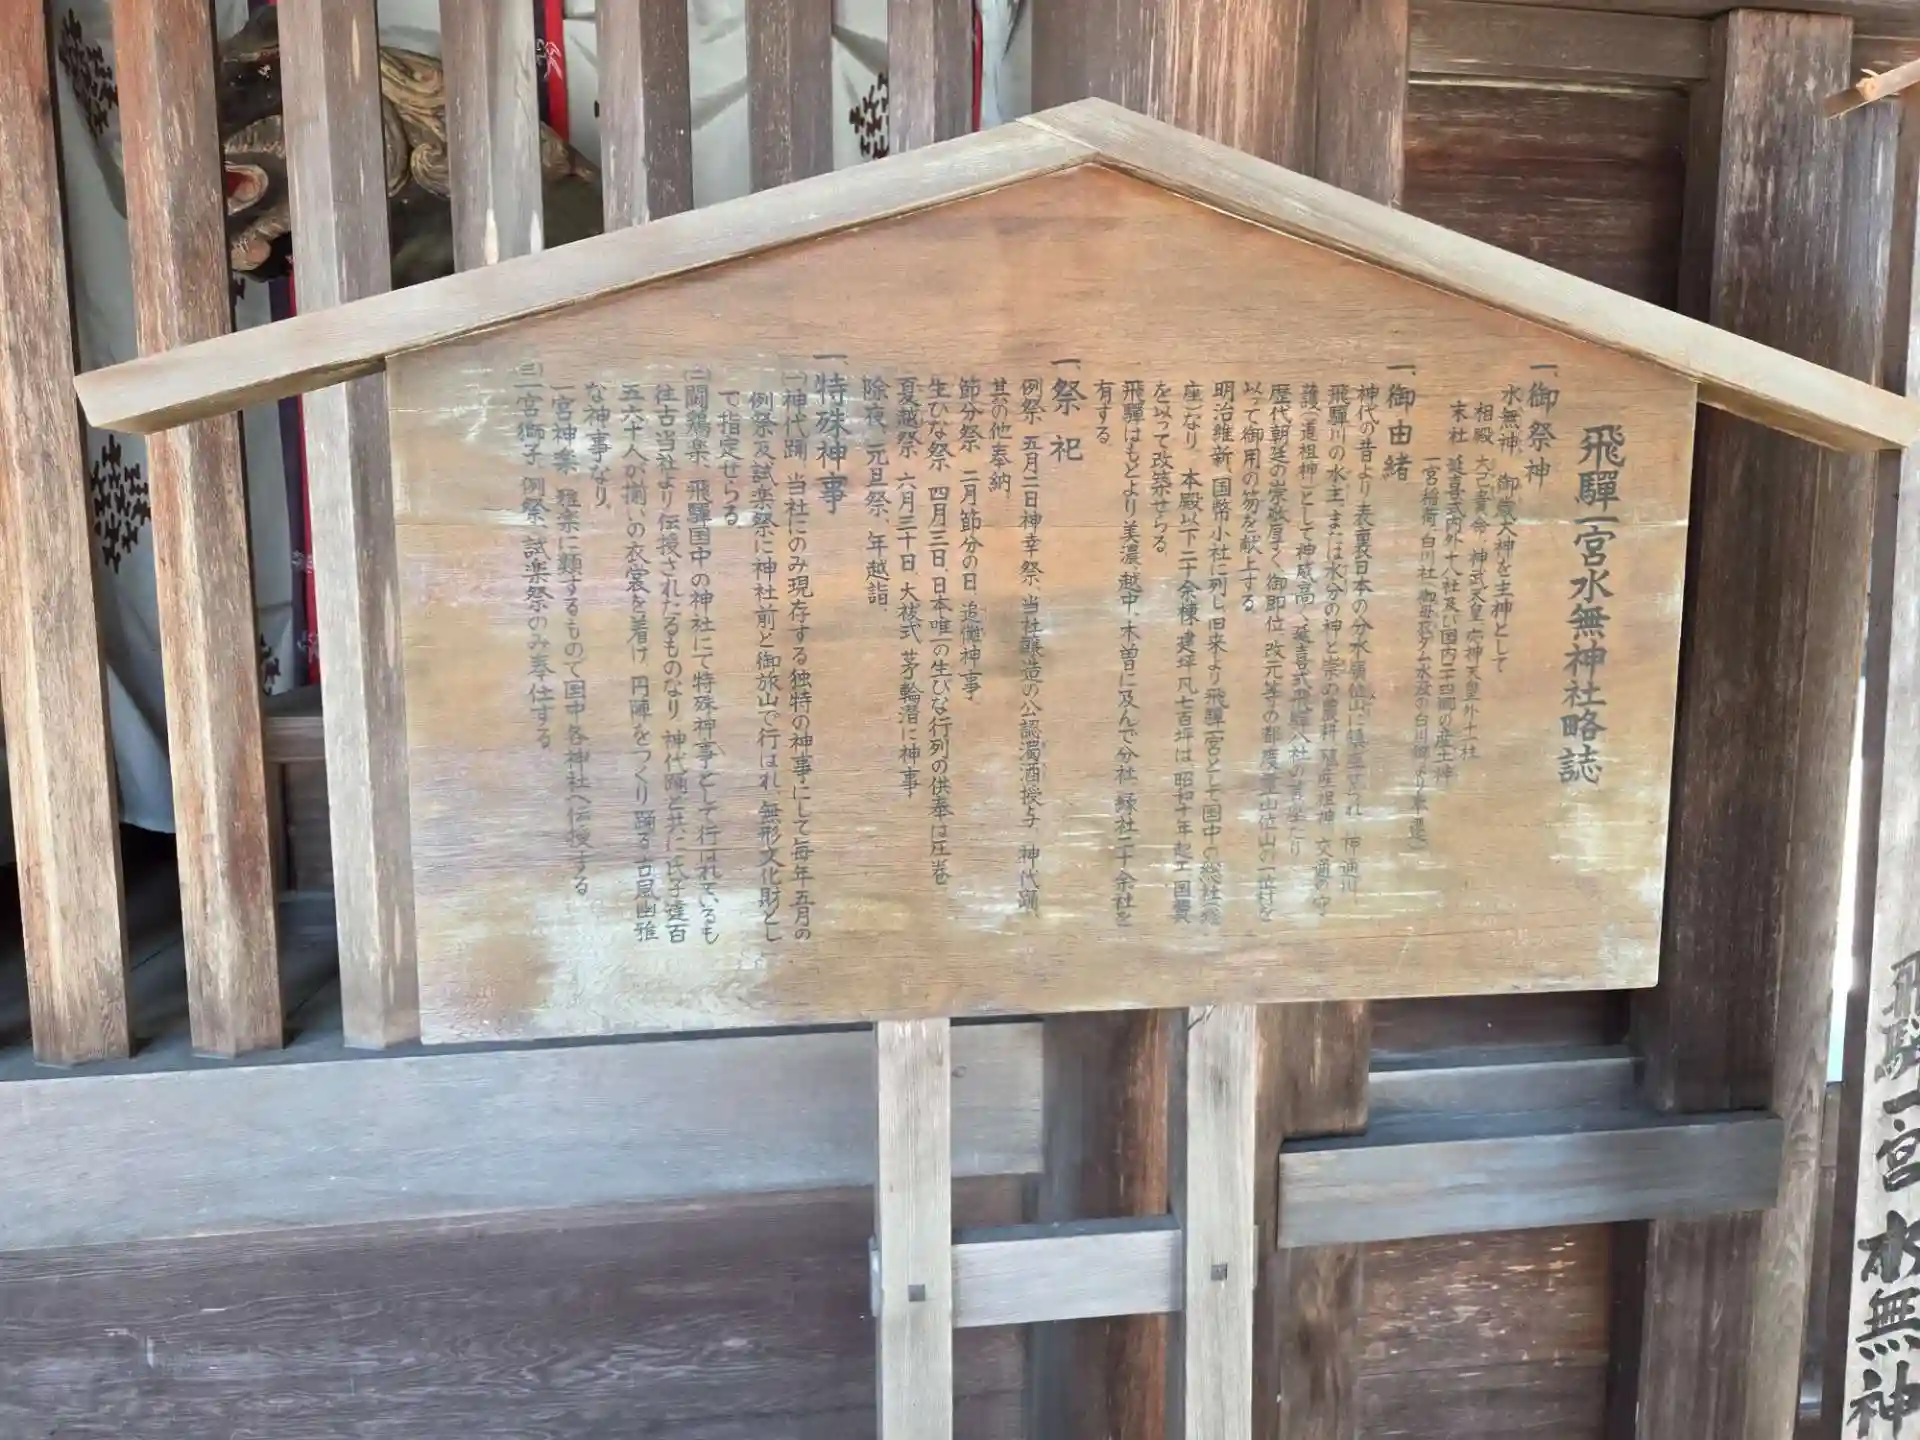 飛驒一宮水無神社略誌
一、御祭神
水無神、御歳大神を主神として
相殿 大己貴命、神武天皇、応神天皇外十一社
末社 延喜式内外十八社及び国内二十四郷の産土神
一宮稲荷、白川社(御母衣ダム水没の白川郷より奉遷)
一、御由緒
神代の昔より表裏日本の分水嶺位山に鎮座せられ、神通川
飛驒川の水主、または水分の神と崇め農耕、殖産祖神、交通の守
護(道祖神)として神威高く延喜式飛驒八社の首座たり
歴代朝廷の崇敬厚く御即位、改元等の都度霊山位山の一位材を
以って御用の笏を献上する
明治維新、国幣小社に列し旧来より飛驒一宮として国中の総社(総
座)なり、本殿以下二十余棟、建坪、凡七百坪は、昭和十年起工、国費
を以って改築せらる
飛驒はもとより美濃、越中、木曽に及んで分社、縁社二十余社を
有する
一、祭祀
例祭、五月二日神幸祭、当社醸造の公認濁酒授与、神代踊、
其の他奉納
節分祭、二月節分の日、追儺神事
生ひな祭、四月三日、日本唯一の生びな行列の供奉は圧巻
夏越祭、六月三十日、大祓式、茅輪潜に神事
除夜、元旦祭、年越詣、
一、特殊神事
(一)神代踊、当社にのみ現存する独特の神事にして毎年五月の
例祭及試楽祭に神社前と御旅山で行はれ、無形文化財とし
て指定せらる
(二)闘鶏楽、飛驒国中の神社にて特殊神事として行はれているも
往古当社より伝授されたるものなり、神代踊と共に氏子達百
五、六十人が揃いの衣裳を着け、円陣をつくり踊る古風幽雅
な神事なり、
一宮神楽、雅楽に類するもので国中各神社へ伝授する
(三)一宮獅子、例祭、試楽祭のみ奉仕する
飛驒一宮水無神